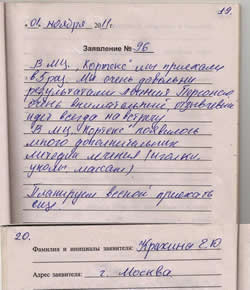 19.
01. ноября 2011 г.
Заявление № 96
В МЦ "Кортекс" мы приехали
в 5 раз. Мы очень довольны
результатами лечения. Персонал
очень внимательный, отзывчивый
идет всегда на встречу
В МЦ "Кортекс" появилось
много дополнительных
методик лечения (иголки,
уколы массаж)
Планируем весной приехать
еще
20.
Фамилия и инициалы заявителя: Кракина Е.Ю
Адрес заявителя: г. Москва